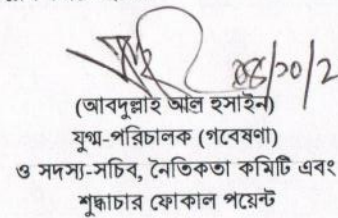 (আবদুল্লাহ আল হুসাইন)
যুগ্ম-পরিচালক (গবেষণা)
ও সদস্য-সচিব, নৈতিকতা কমিটি এবং
শুদ্ধাচার ফোকাল পয়েন্ট